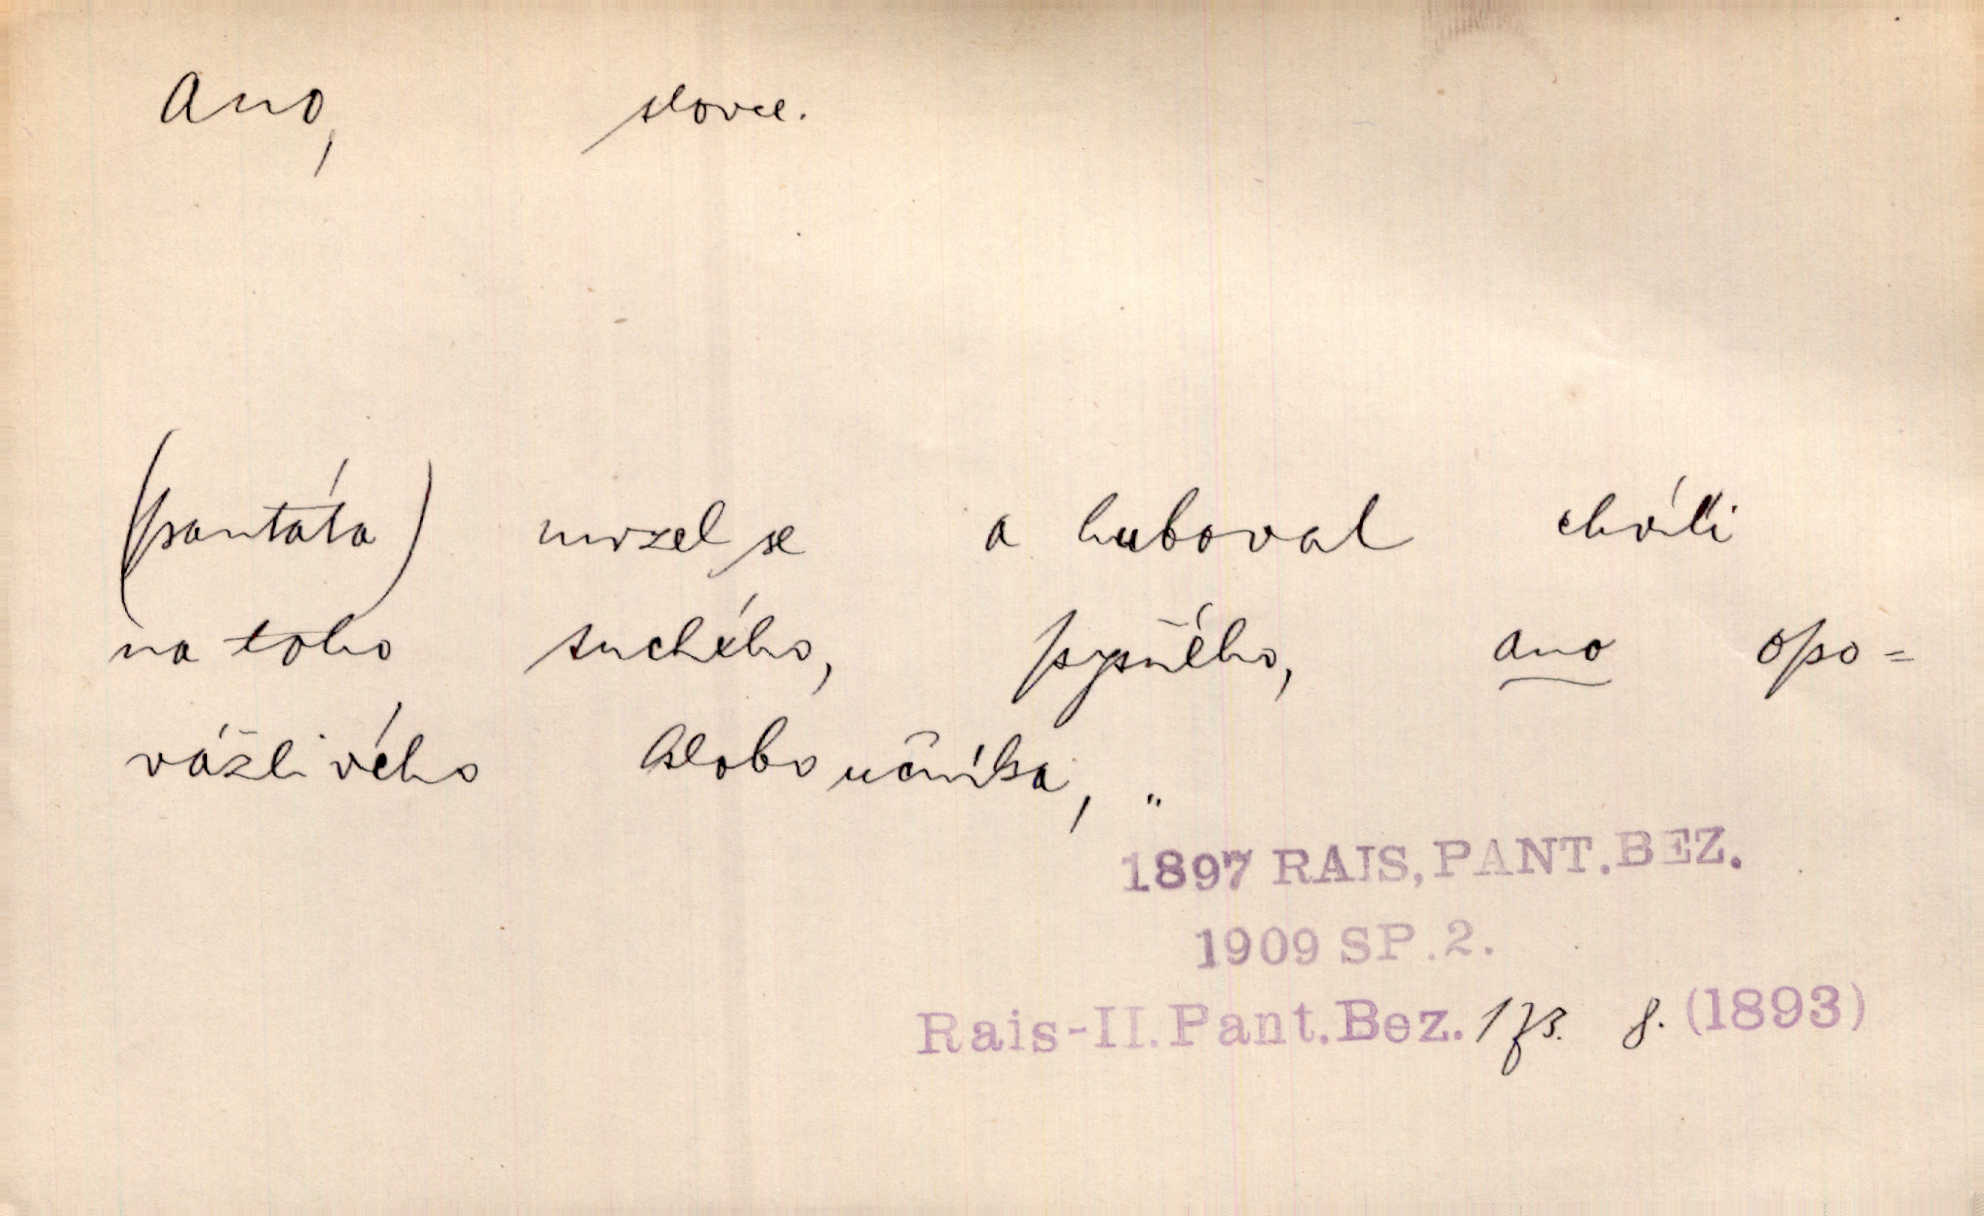 Ano, slovce.
(pantáta) mrzel se a huboval chvíli
na toho suchého, pyšného, ano opo=
vážlivého kloboučníka, "
1897 RAIS, PANT. BEZ.
1909 SP. 2.
Rais-II. Pant. Bez. 173. 8. (1893)